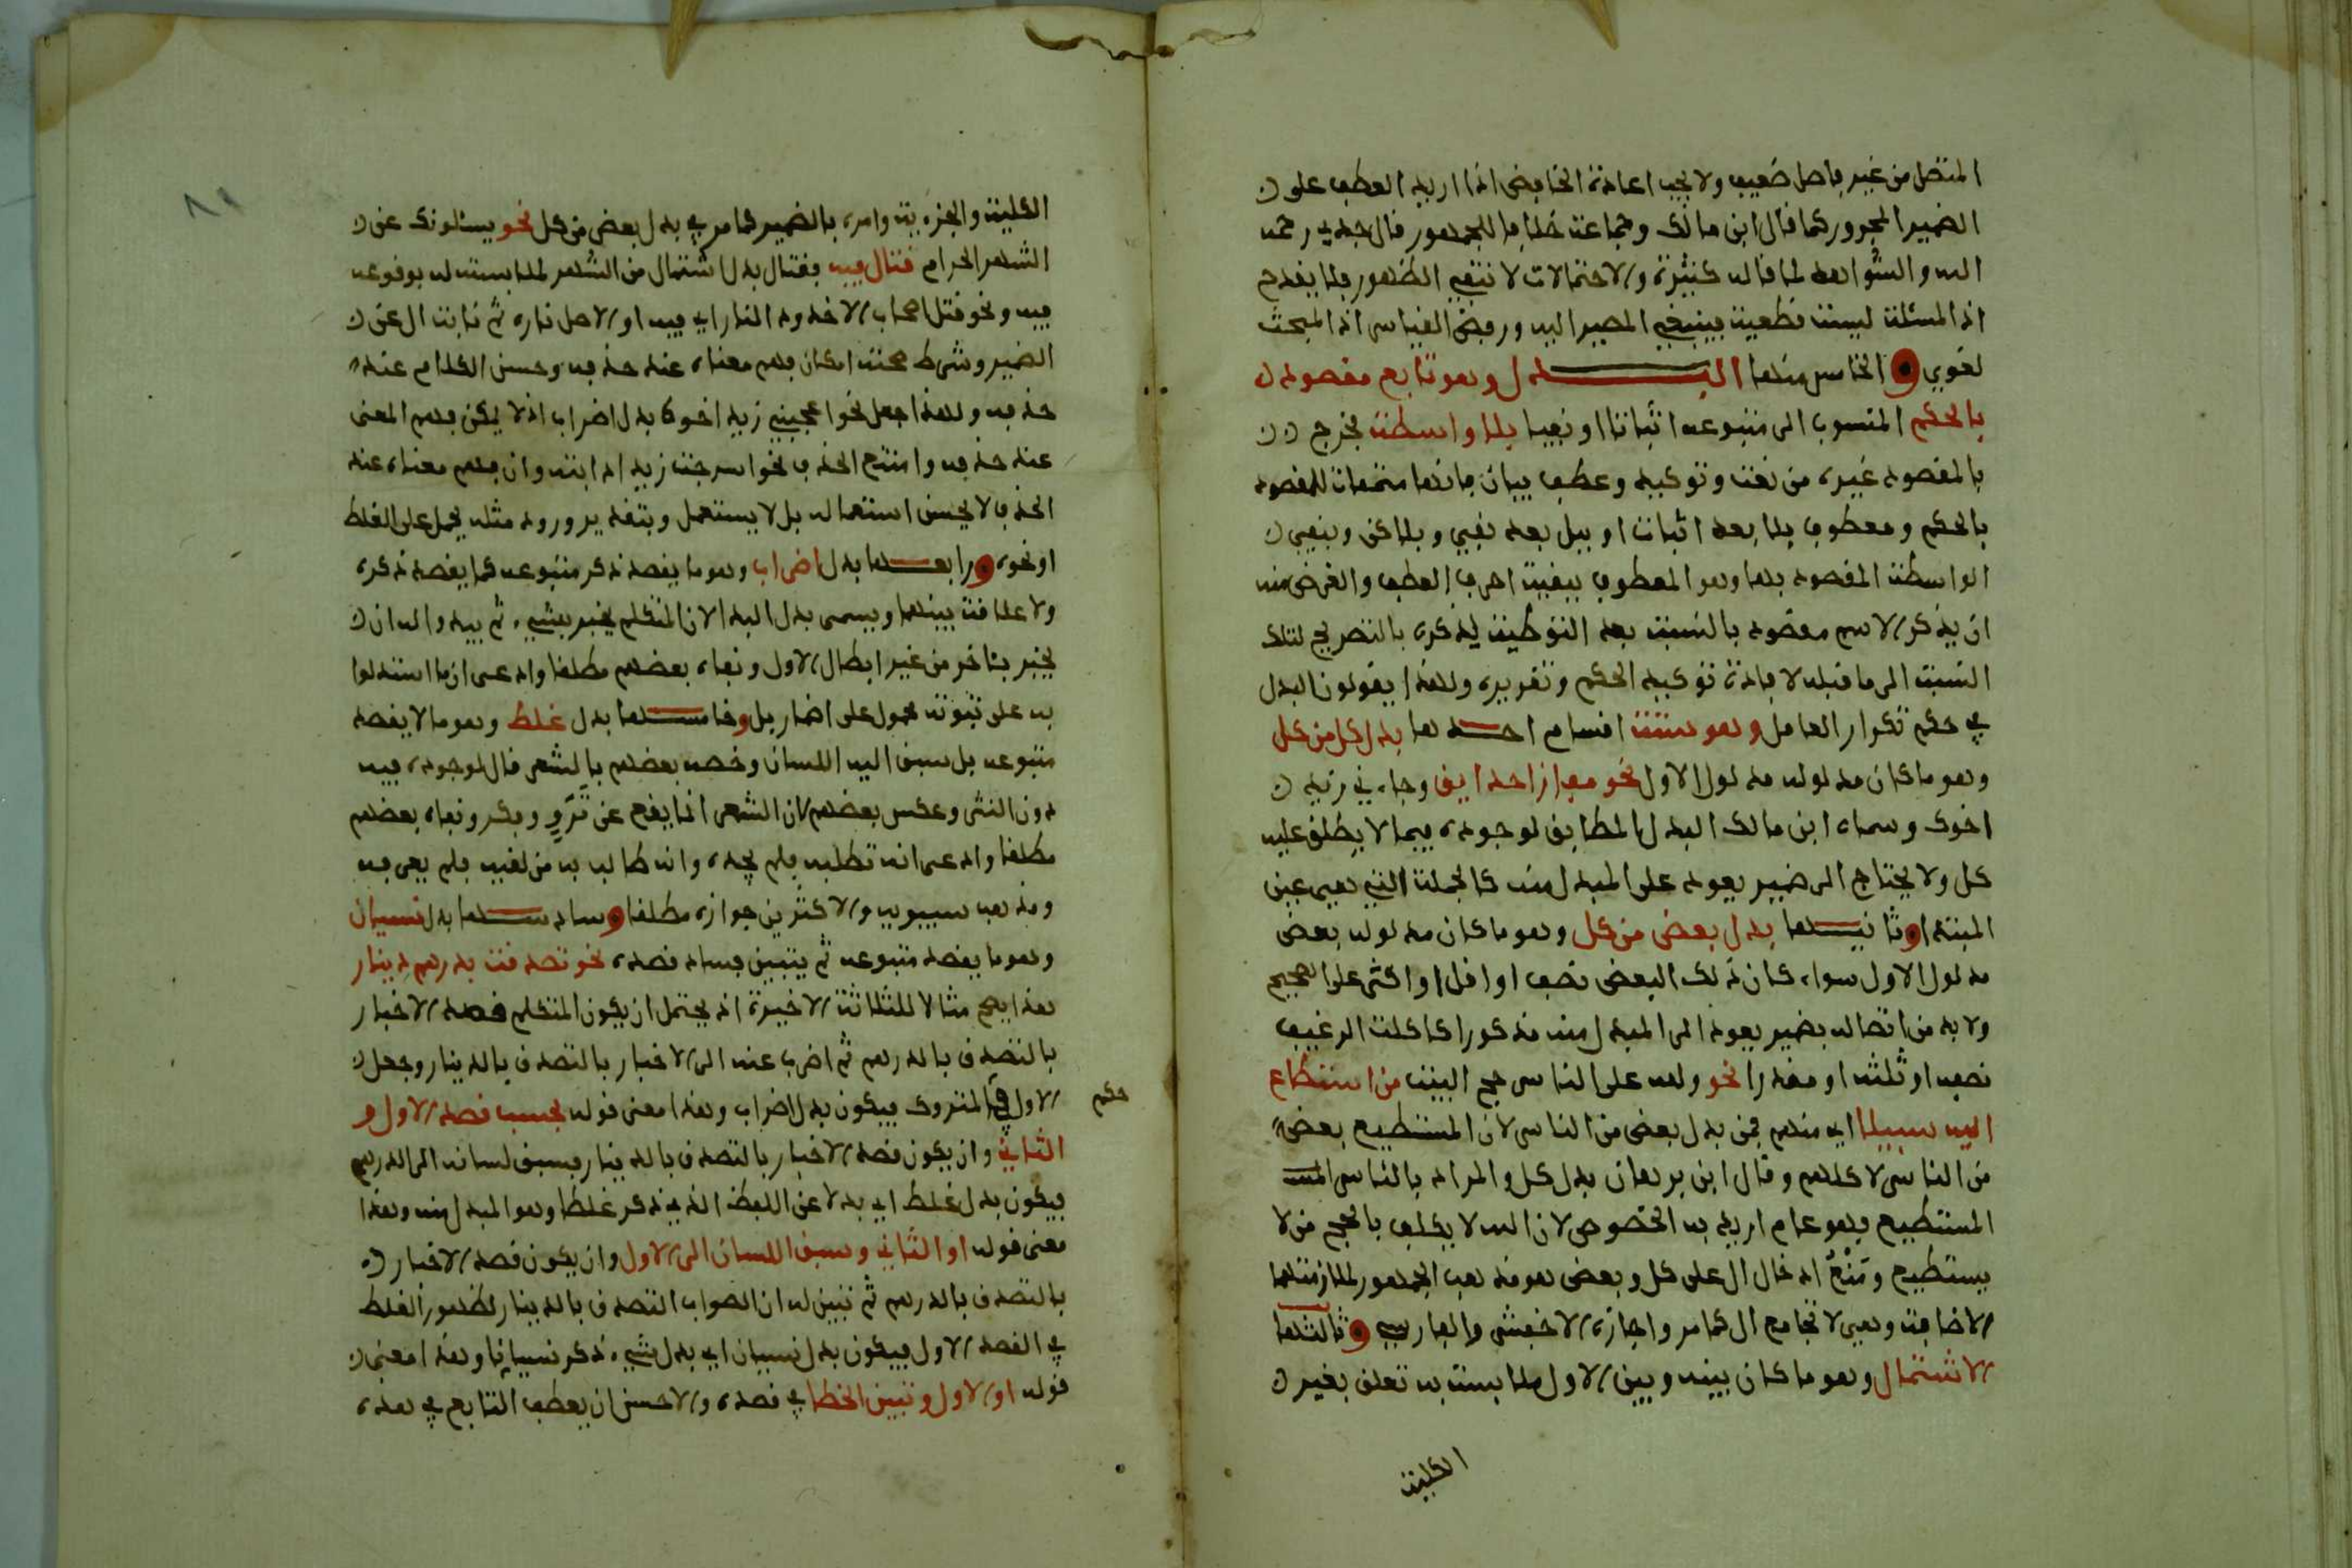 المتصل من غير فاصل ضعيف ولا يجب اعادة الخافض اذا اريد العطف على
الضمير المجرور كما قال ابن مالك وجماعة خلافا للجمهور قال جدي رحمه
الله والشواهد لما قاله كثيرة والاحتمالات لا تنفي الظهور فلا يقدح
اذ المسئلة ليست قطعية فينبغي المصير اليه ورفض القياس اذ المبحث
لغوي والخامس منها البدل وهو تابع مقصود
بالحكم المنسوب الى متبوعه اثباتا او نفيا بلا واسطة فخرج
بالمقصود غيره من نعت وتوكيد وعطف بيان فانها متممات للمقصود
بالحكم ومعطوف بلا بعد اثبات او ببل بعد نفي وبلاكن وبنفي
الواسطة المقصود بها وهو المعطوف ببقية احرف العطف والغرض منه
ان يذكر الاسم مقصود بالنسبة بعد التوطية لذكره بالتصريح لتلك
النسبة الى ما قبله لافادة توكيد الحكم وتقريره ولهذا يقولون البدل
في حكم تكرار العامل وهو ستة اقسام احدها بدل كل من كل
وهو ما كان مدلوله مدلول الاول نحو مفازا حدايق وجاءني زيد
اخوك وسماه ابن مالك البدل المطابق لوجوده فيما لا يطلق عليه
كل ولا يحتاج الى ضمير يعود على المبدل منه كالجملة التي هي عين
المبتدا وثانيها بدل بعض من كل وهو ما كان مدلوله بعض
مدلول الاول سواء كان ذلك البعض نصف او اقل او اكثر على الصحيح
ولا بد من اتصاله بضمير يعود الى المبدل منه مذكورا كاكلت الرغيف
نصفه او ثلثه او مقدرا نحو ولله على الناس حج البيت من استطاع
اليه سبيلا اي منهم فمن بدل بعض من الناس لان المستطيع بعض
من الناس لا كلهم وقال ابن برهان بدل كل والمراد بالناس المست
المستطيع فهو عام اريد به الخصوص لان الله لا يكلف بالحج من لا
يستطيع ومنع ادخال ال على كل وبعض هو مذهب الجمهور لملازمتهما
الاضافة وهي لا تجامع ال كما مر واجازه الاخفش والفارسي وثالثها
الاشتمال وهو ما كان بينه وبين الاول ملابسة به تعلق بغير
الكلية
الكلية والجزءية وامره بالضمير كما مر في بدل بعض من كل نحو يسئلونك عن
الشهر الحرام قتال فيه فقتال بدل اشتمال من الشهر لملابسته له بوقوعه
فيه ونحو قتل اصحاب الاخدود النار اي فيه او الاصل ناره ثم نابت ال عن
الضمير وشرط صحته امكان فهم معناه عند حذفه وحسن الكلام عند
حذفه ولهذا جعل نحو اعجبني زيد اخوك بدل اضراب اذ لا يمكن فهم المعنى
عند حذفه وامتنع الحذف نحو اسرجت زيدا دابته وان فهم معناه عند
الحذف لا يحسن استعماله بل لا يستعمل وبتقدير وروده مثله يحمل على الغلط
او نحوه ورابعها بدل اضراب وهو ما يقصد ذكر متبوعه كما يقصد ذكره
ولا علاقة بينهما ويسمى بدل البدا لان المتكلم يخبر بشيء ثم يبدو اله ان
يخبر بئاخر من غير ابطال الاول ونفاه بعضهم مطلقا وادعى ان ما استدلوا
به على ثبوته محمول على اضمار بل وخامسها بدل غلط وهو ما لا يقصد
متبوعه بل سبق اليه اللسان وخصه بعضهم بالشعر قال لوجوده فيه
دون النثر وعكس بعضهم لان الشعر انما يقع عن تروّ وفكر ونفاه بعضهم
مطلقا وادعى انه تطلبه فلم يجده وانه طالب به من لقيه فلم يعرفه
ومذهب سيبويه والاكثرين جوازه مطلقا وسادسها بدل نسيان
وهو ما يقصد متبوعه ثم يتبين فساد قصده نحو تصدقت بدرهم دينار
هذا يصح مثالا للثلاثة الاخيرة اذ يحتمل ان يكون المتكلم قصد الاخبار
بالتصدق بالدرهم ثم اضرب عنه الى الاخبار بالتصدق بالدينار وجعل
الاول في المتروك فيكون بدل اضراب وهذا معنى قوله بحسب قصد الاول و
حكم
الثاني وان يكون قصد الاخبار بالتصدق بالدينار فسبق لسانه الى الدرهم
فيكون بدل غلط اي بدلا عن اللفظ الذي ذكر غلطا وهو المبدل منه وهذا
معنى قوله او الثاني وسبق اللسان الى الاول وان يكون قصد الاخبار
بالتصدق بالدرهم ثم تبين له ان الصواب التصدق بالدينار لظهور الغلط
في القصد الاول فيكون بدل نسيان اي بدل شيء ذكر نسيانا وهذا معنى
قوله او الاول وتبين الخطا في قصده والاحسن ان يعطف التابع في هذه